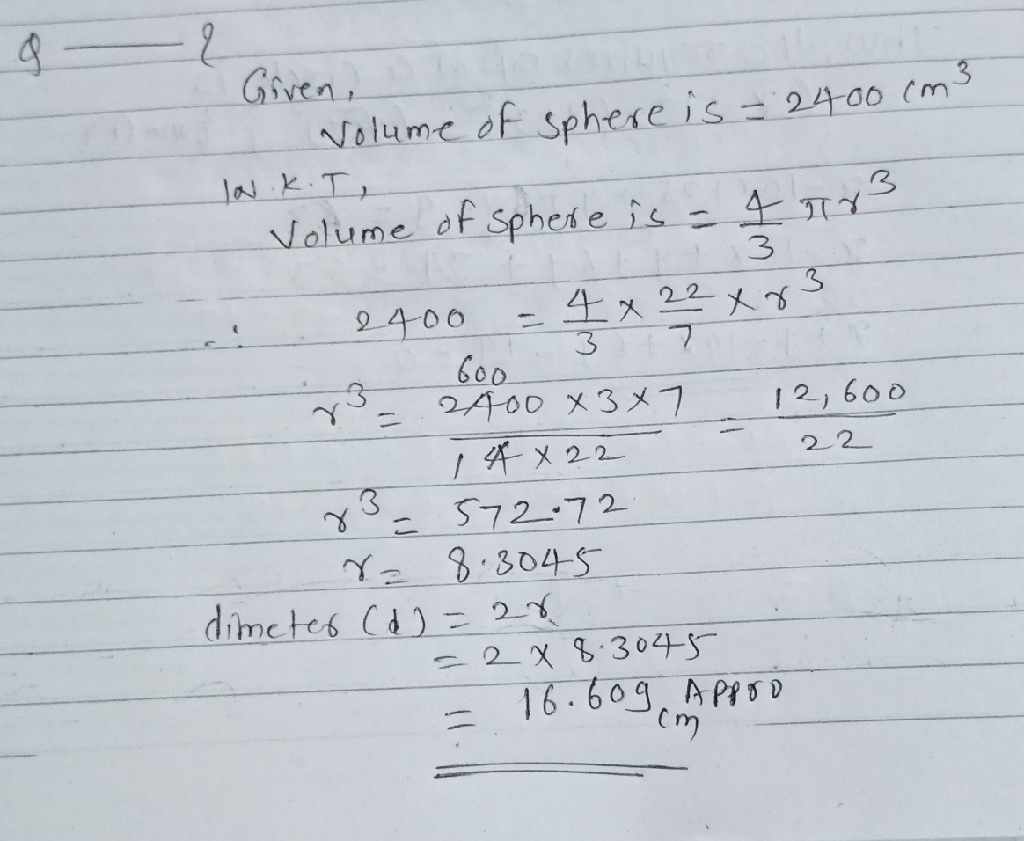 Q — 2
Given,
Volume of sphere is = 2400 cm³
W.K.T,
Volume of sphere is = 4/3 πr³
∴ 2400 = 4/3 × 22/7 × r³
r³ = 600 2400 × 3 × 7 / 1 4 × 22 = 12,600 / 22
r³ = 572.72
r = 8.3045
dimeter (d) = 2r
= 2 × 8.3045
= 16.609 cm Appro